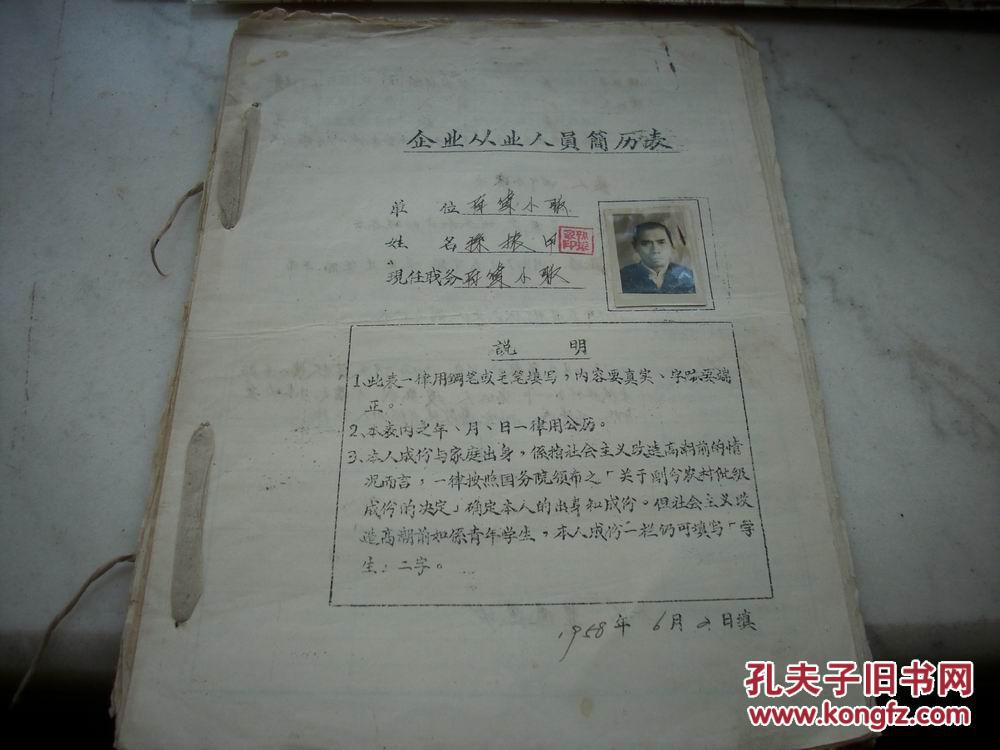 企业从业人員简历表
单 位
姓 名
現任职务
説 明
1、此表一律用鋼笔或毛笔填写，内容要真实、字跡要端
正。
2、本表内之年、月、日一律用公历。
3、本人成份与家庭出身，係指社会主义改造高潮前的情
况而言，一律按照国务院頒布之「关于劃分农村阶级
成份的决定」确定本人的出身和成份。但社会主义改
造高潮前如係青年学生，本人成份一栏仍可填写「学
生」二字。
1958年 6月2日填
孔夫子旧书网
www.kongfz.com